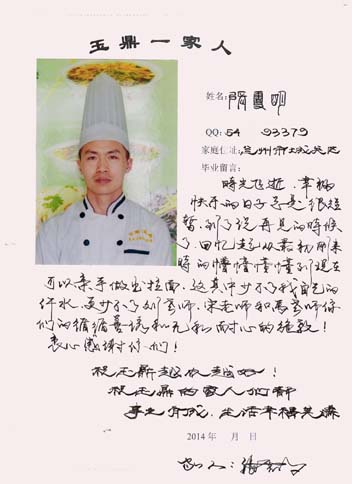 玉鼎一家人
姓名:
QQ: 54 93379
家庭住址:
毕业留言:
時光飞逝、幸福
快乐的日子总是很短
暂,到了说再见的時候
了,回忆起从最初刚来
時的懵懵懂懂到现在
可以亲手做出拉面,这其中少不了我自己的
汗水,更少不了刘老师,宋老师和馬老师你
们的循循善诱和无私耐心的德教!
衷心感谢你们!
祝玉鼎越办越好!
祝玉鼎的家人们都
事业有成,生活幸福美满
2014年 月 日